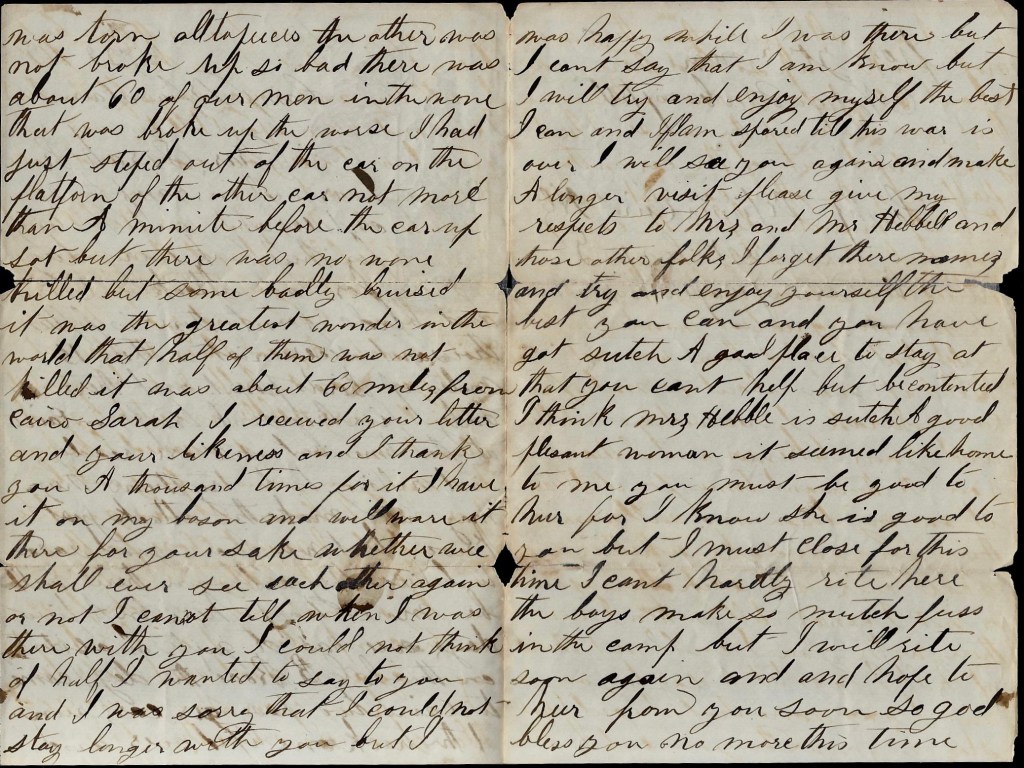 was torn altopiecers the other was
not broke up so bad there was
about 60 of our men in the none
that was broke up the worse I had
just steped out of the car on the
platforn of the other car not more
than A minnite before the car up
sot but there was no none
killed but some badly bruised
it was the greatest wonder in the
world that half of them was not
killed it was about 60 miles from
cairo Sarah I receved your litter
and your likeness and I thank
you A thousand times for it I have
it on my boson and will ware it
there for your sake whether wee
shall ever see each other again
or not I canot tell when I was
there with you I could not think
of half I wanted to say to you
and I was sorry that I could not
stay longer with you but I
was happy while I was there but
I cant say that I am know but
I will try and enjoy myself the best
I can and If I am spared till this war is
over I will see you again and make
A longer visit please give my
respects to Mrs and Mr Hebbell and
those other folks I forget there names
and try and enjoy yourself the
best you can and you have
got sutch A good place to stay at
that you cant help but be contented
I think Mrs Hebble is sutch A good
plesant woman it seemed like home
to me you must be good to
hur for I know she is good to
you but I must close for this
time I cant hardly rite here
the boys make so mutch fuss
in the camp but I will rite
soon again and and hope to
hur from you soon So god
bless you no more this time